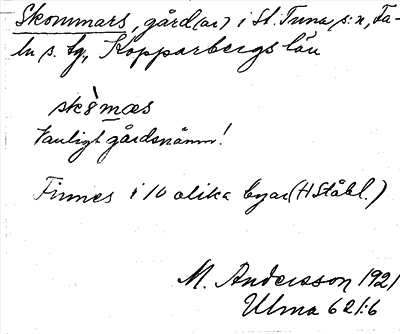 Skommars, gård(ar) i St. Tuna s:n, Fa-
lu s. tg, Kopparbergs län
Vanligt gårdsnamn!
Finnes i 10 olika byar (H Ståhl.)
M. Andersson 1921
Ulma 621:6